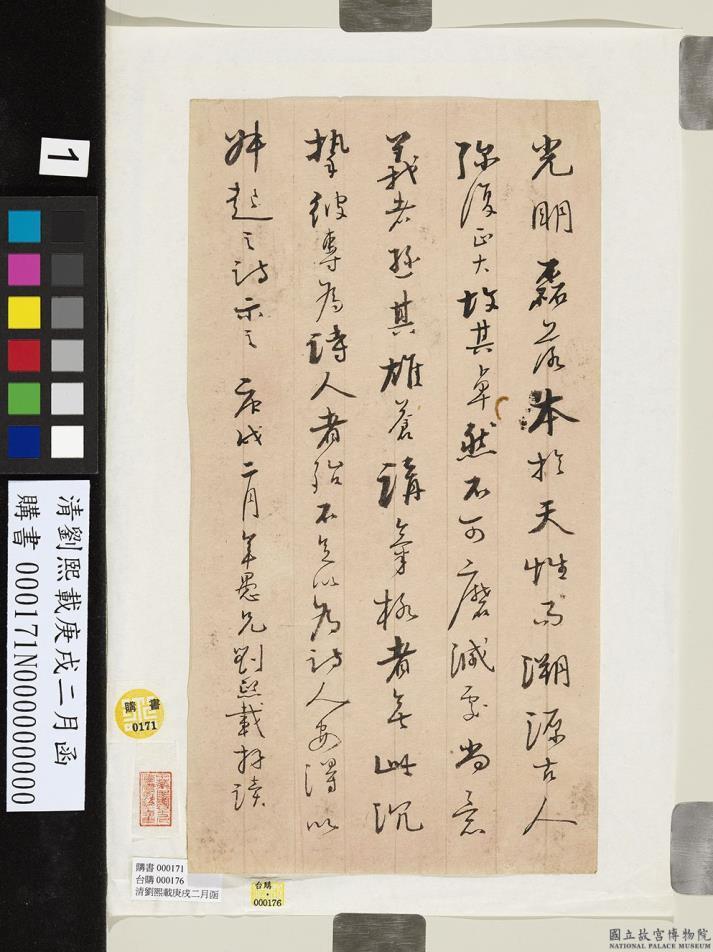 光明磊落本於天性而溯源古人
弥復正大故其卓然不可磨滅處尚意
義者遜其雄蒼講氣格者無此沉
摯彼專為詩人者殆不足以為詩人安得以
起之詩示之 庚戌二月年愚兄劉熙載拜讀
1
清劉熙載庚戌二月函
購書 000171N000000000
購書
0171
購書 000171
台購 000176
清劉熙載庚戌二月函
台購
000176
國立故宮博物院
NATIONAL PALACE MUSEUM